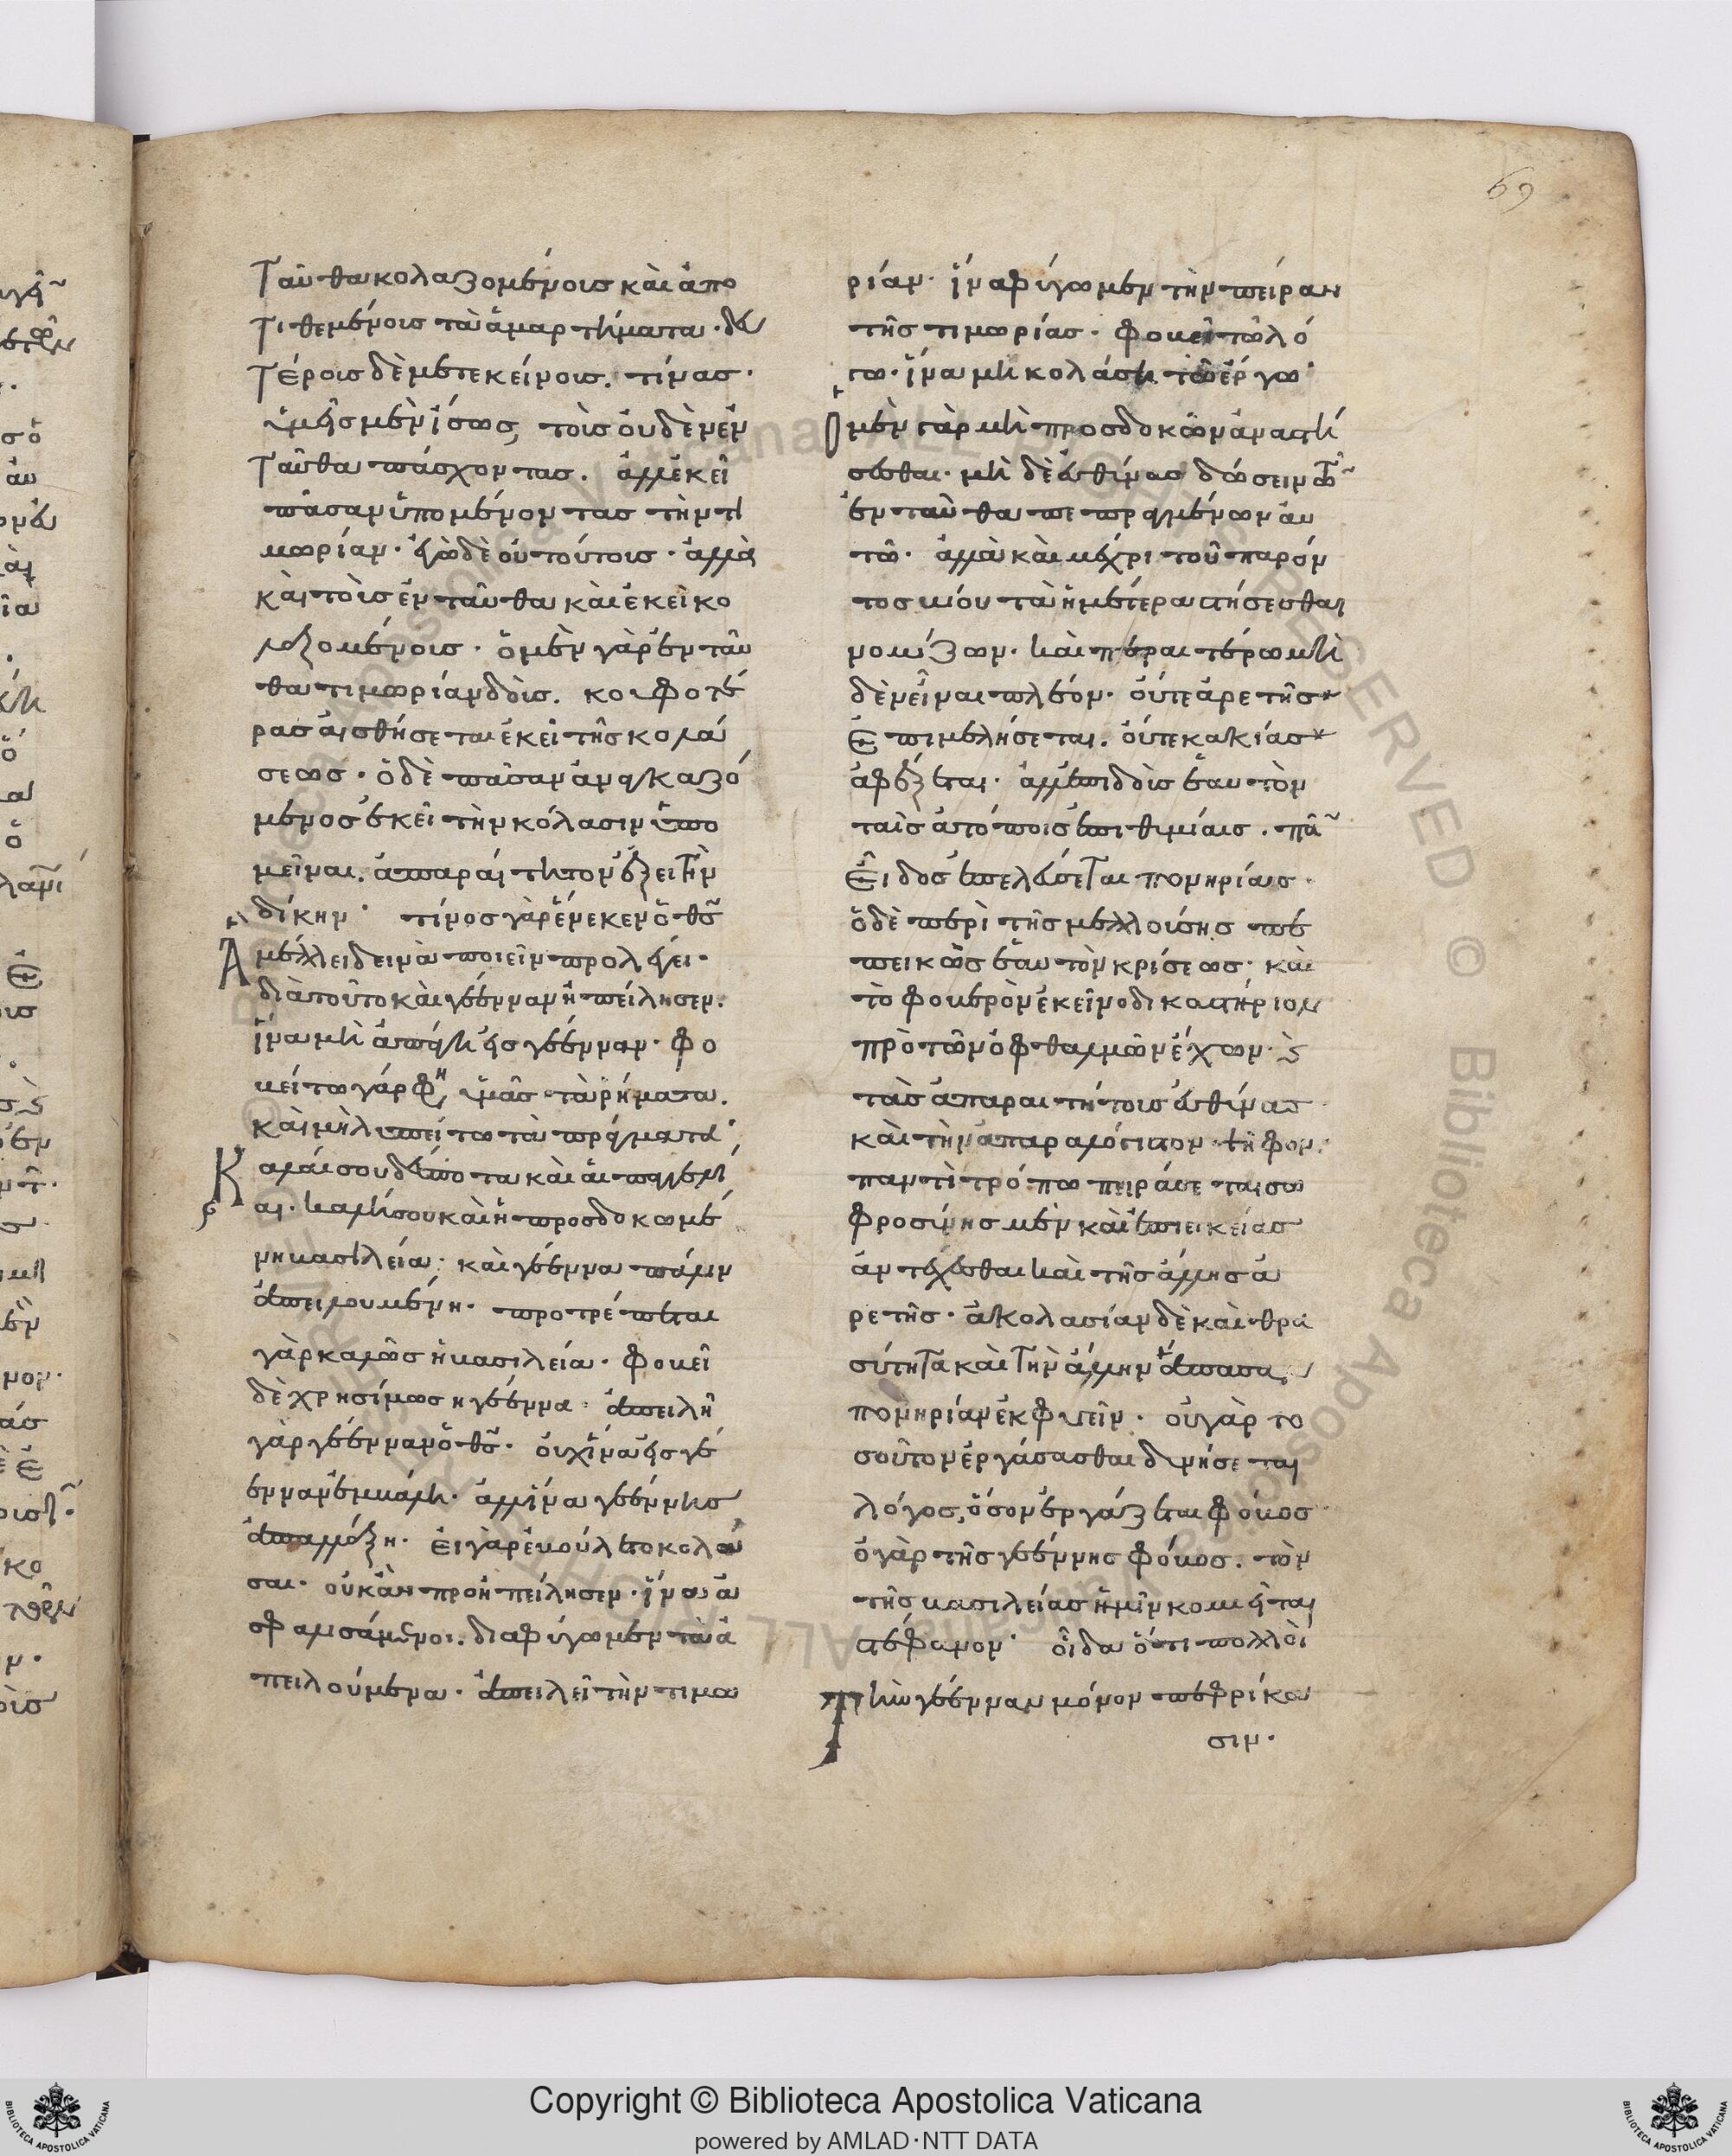 69
ταῦθα κολαζομένοις καὶ ἀπο
τιθεμένοις τὰ ἁμαρτήματα· δευ
τέροις δὲ μετ ἐκείνοις. τίνας·
ὑμεῖς μὲν ἴσως, τοὺς οὐδὲν ἐν
ταῦθα πάσχοντας. ἀλλ ἐκεῖ
πᾶσαν ὑπομένοντας τὴν τι
μωρίαν· ἐγὼ δὲ οὐ τούτοις· ἀλλὰ
καὶ τοῖς ἐνταῦθα καὶ ἐκεῖ κο
λαζομένοις· ὁ μὲν γὰρ ἐνταῦ
θα τιμωρίαν δοὺς. κουφοτέ
ρας αἰσθήσεται ἐκεῖ τῆς κολά
σεως· ὁ δὲ πᾶσαν ἀναγκαζό
μενος ἐκεῖ τὴν κόλασιν ὑπο
μεῖναι. ἀπαραίτητον ἕξει τὴν
δίκην· τίνος γὰρ ἕνεκεν ὁ θς
μέλλει δεινὰ ποιεῖν προλέγει·
Διὰ τοῦτο καὶ γέενναν ἠπείλησεν.
ἵνα μὴ ἀπάγῃ εἰς γέενναν· φο
βείτω γάρ φη, ὑμᾶς τὰ ῥήματα.
καὶ μὴ λυπείτω τὰ πράγματα·
Καλαὶ σου δέσποτα καὶ αἱ ἀπειλαί
αι. καλή σου καὶ ἡ προσδοκωμέ
νη βασιλεία· καὶ γέεννα πάλιν
ἀπειλουμένη· προτρέπεται
γὰρ καλῶς ἡ βασιλεία· φοβεῖ
δὲ χρησίμως ἡ γέεννα· ἀπειλεῖ
γὰρ γέενναν ὁ θς· οὐχ ἵνα εἰς γέ
ενναν ἐμβάλῃ· ἀλλ ἵνα γεέννης
ἀπαλλάξῃ· εἰ γὰρ ἐβούλετο κολά
σαι· οὐκ ἂν προηπείλησεν· ἵνα ἀ
σφαλισάμενοι. διαφύγωμεν τὰ ἀ
πειλούμενα· ἀπειλεῖ τὴν τιμω
ρίαν· ἵνα φύγωμεν τὴν πεῖραν
τῆς τιμωρίας· φοβεῖ τῷ λό
γω· ἵνα μὴ κολάσῃ τῷ ἔργω·
Ὁ μὲν γὰρ μὴ προσδοκῶν ἀναστή
σεσθαι· μὴ δὲ εὐθύνας δώσειν τῶν
ἐνταῦθα πεπραγμένων αὐ
τῶ· ἀλλὰ καὶ μέχρι τοῦ παρόν
τος βίου τὰ ἡμέτερα στήσεσθαι
νομίζων· καὶ περαιτέρω μη
δὲν εἶναι πλέον· οὔτε ἀρετῆς
ἐπιμελήσεται. οὔτε κακίας
ἀφέξεται· ἀλλ ἐπιδοὺς ἑαυτὸν
ταῖς ἀτόποις ἐπιθυμίαις· πᾶν
εἶδος ἐπελεύσεται πονηρίας·
ὁ δὲ περὶ τῆς μελλούσης πε
πεικὼς ἑαυτὸν κρίσεως· καὶ
τὸ φοβερὸν ἐκεῖνο δικαστήριον
πρὸ τῶν ὀφθαλμῶν ἔχων· καὶ
τὰς ἀπαραιτήτους εὐθύνας
καὶ τὴν ἀπαραλόγιστον ψῆφον·
παντὶ τρόπω πειράσεται σω
φροσύνης μὲν καὶ ἐπιεικείας
ἀντέχεσθαι καὶ τῆς ἄλλης ἀ
ρετῆς· ἀκολασίαν δὲ καὶ θρα
σύτητα καὶ τὴν ἄλλην ἅπασαν
πονηρίαν ἐκφυγεῖν· οὐ γὰρ το
σοῦτον ἐργάσασθαι δυνήσεται
λόγος, ὅσον ἐργάζεται φόβος
ὁ γὰρ τῆς γεέννης φόβος. τὸν
τῆς βασιλείας ἡμῖν κομιεῖται
στέφανον· οἶδα ὅτι πολλοὶ
τὴν γέενναν μόνον πεφρίκα
σιν·
Copyright © Biblioteca Apostolica Vaticana
powered by AMLAD·NTT DATA